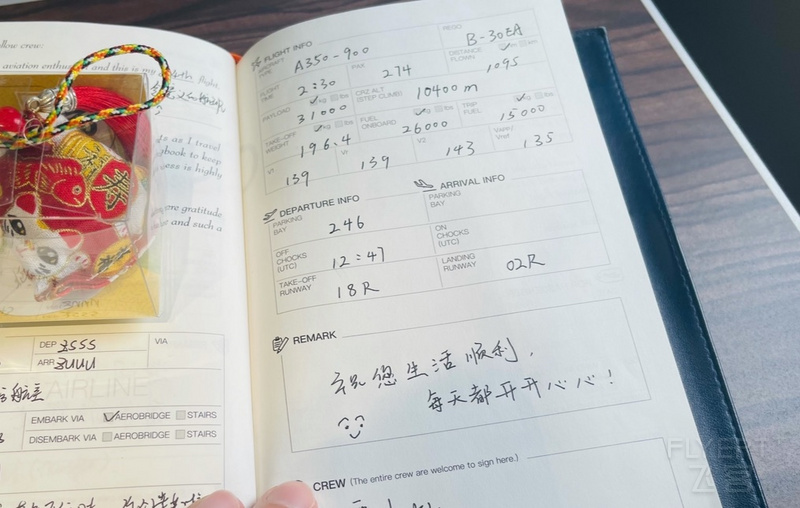 llow crew:
aviation enthu
and this is my
th flight,
ts as I travel
gbook to keep
ess is highly
ore gratitude
and such a
DEP ZSSS
VIA
ARR ZUUU
EMBARK VIA AEROBRIDGE STAIRS
DISEMBARK VIA AEROBRIDGE STAIRS
FLIGHT INFO
AIRCRAFT TYPE A350-900
REGO B-30EA
FLIGHT TIME 2:30
PAX 274
DISTANCE FLOWN 1095
PAYLOAD kg lbs 31000
CRZ ALT (STEP CLIMB) 10400 m
TAKE-OFF WEIGHT kg lbs 196.4
FUEL ONBOARD kg lbs 26000
TRIP FUEL kg lbs 15000
V1 139
Vr 139
V2 143
Vapp/Vref 135
DEPARTURE INFO
ARRIVAL INFO
PARKING BAY 246
PARKING BAY
OFF CHOCKS (UTC) 12:47
ON CHOCKS (UTC)
TAKE-OFF RUNWAY 18R
LANDING RUNWAY 02R
REMARK
祝您生活顺利，
每天都开开心心！
CREW (The entire crew are welcome to sign here.)
FLYERT